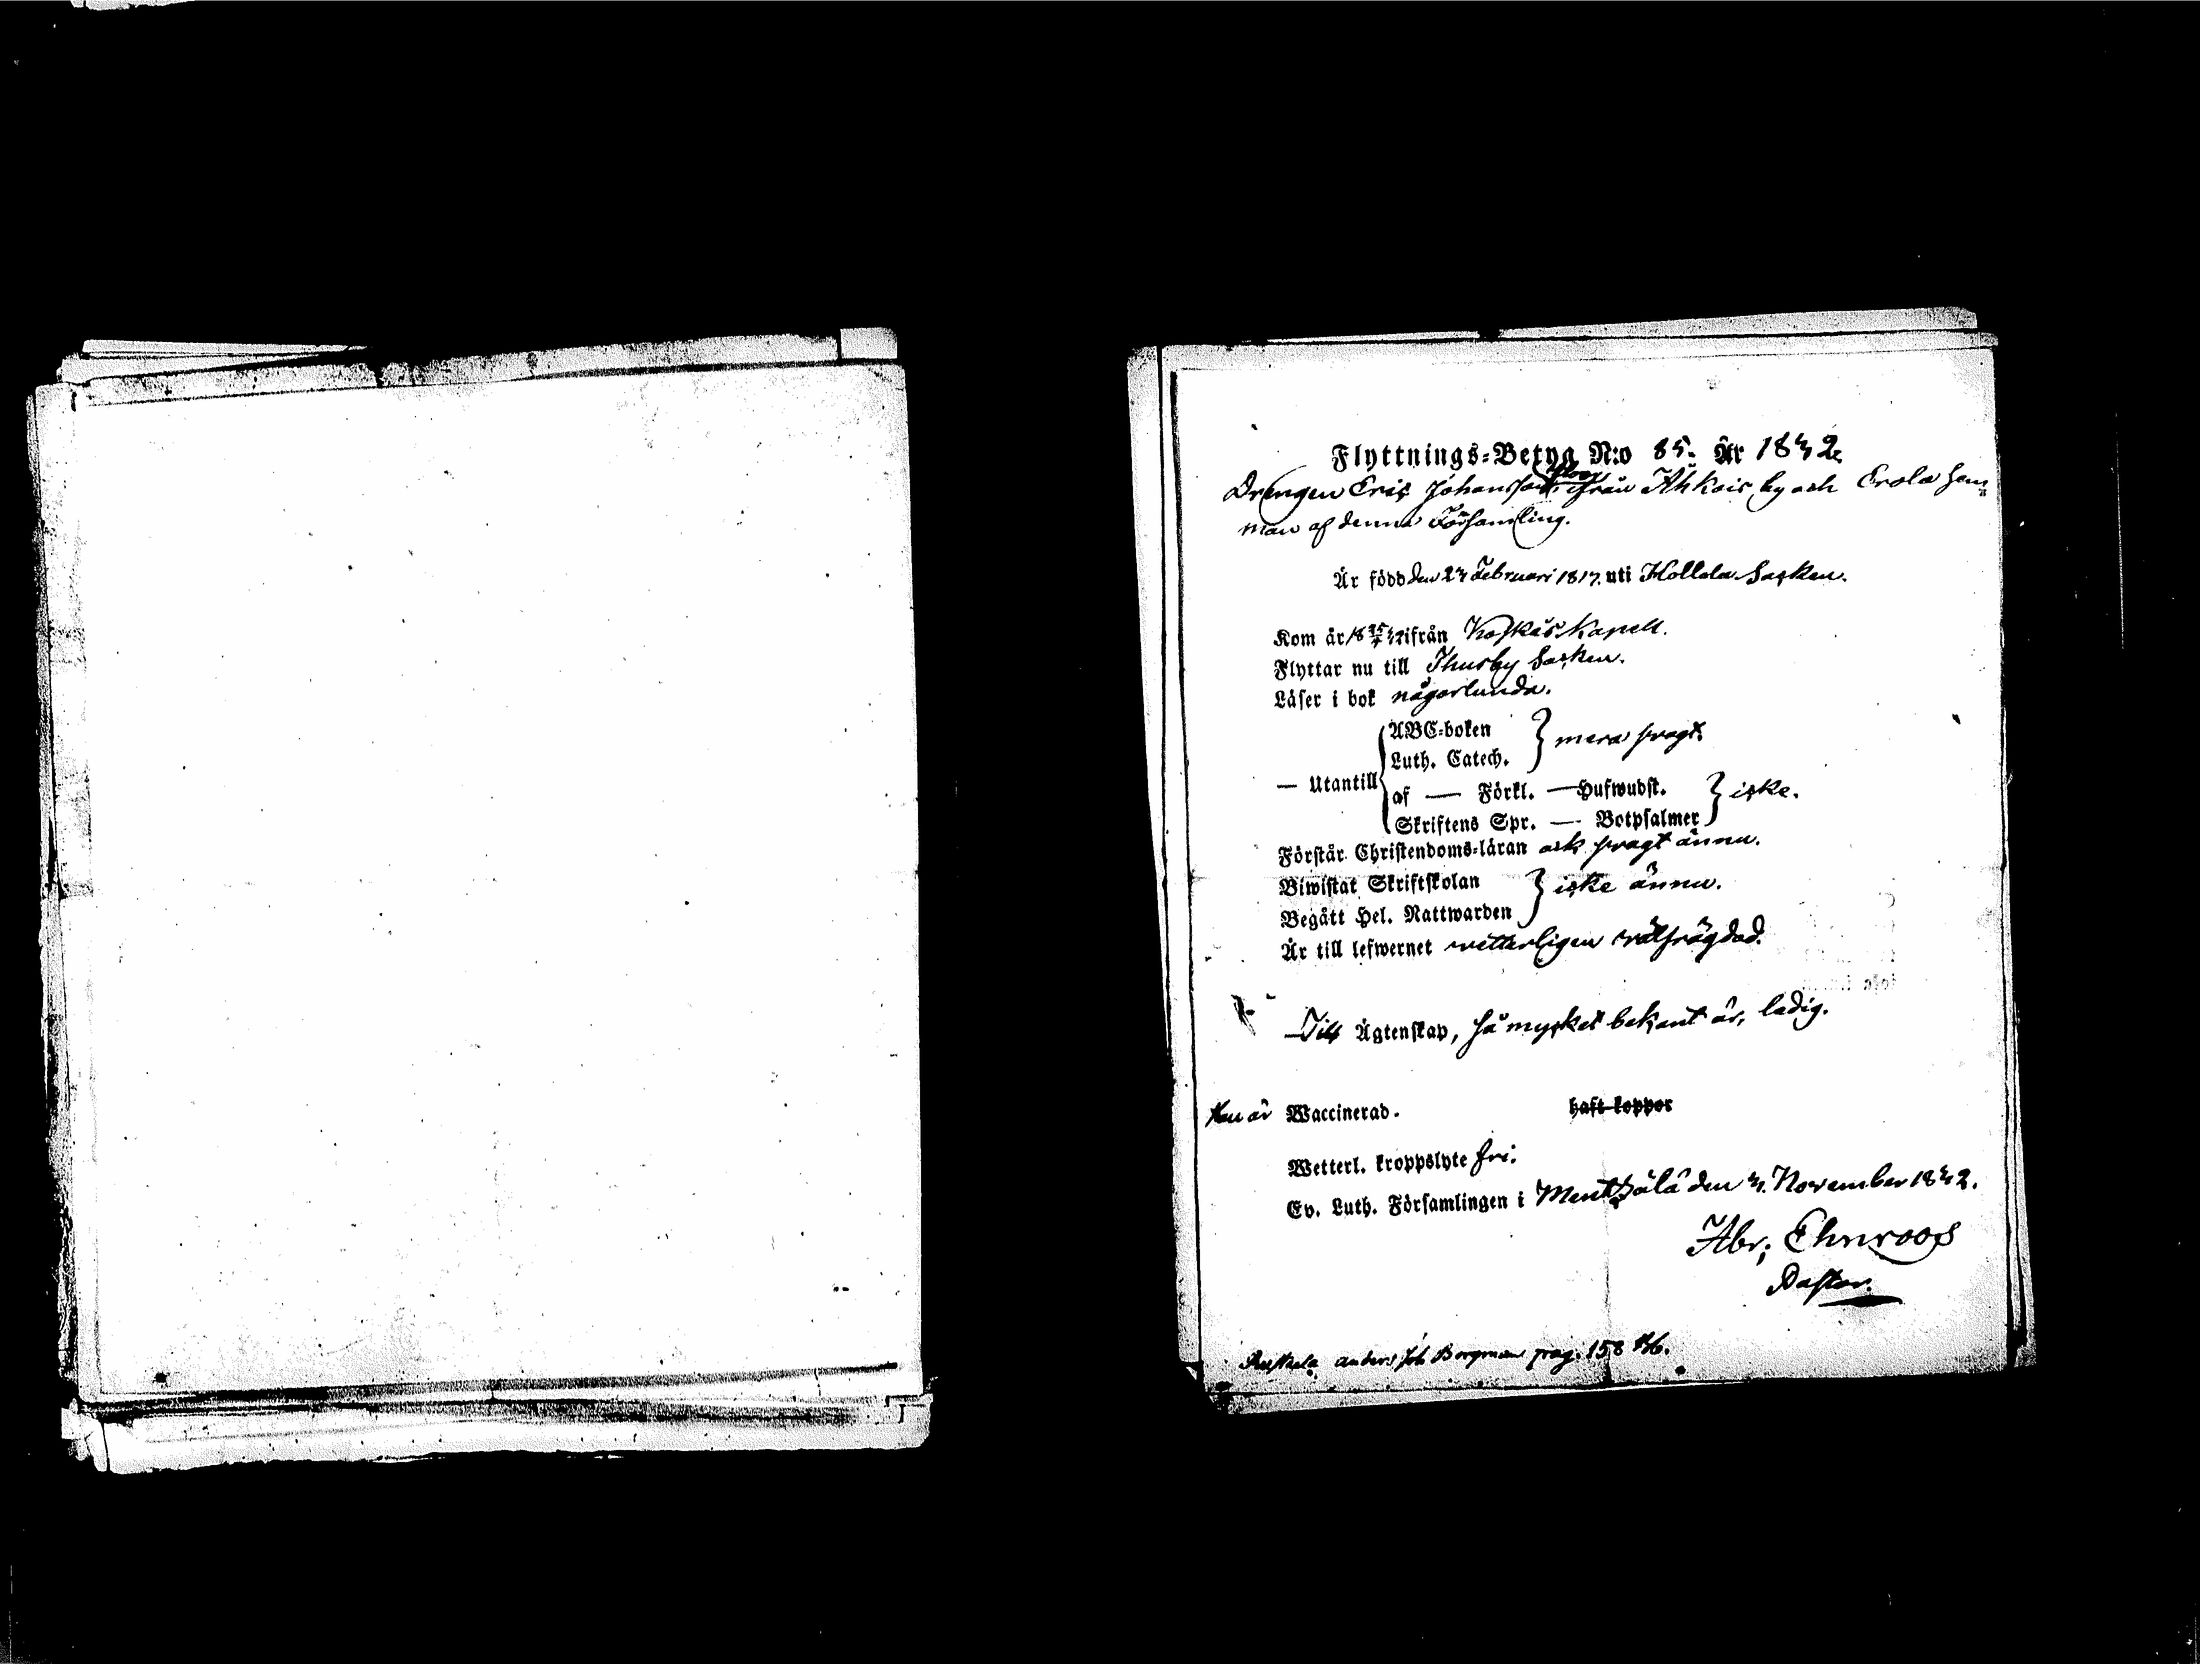 Flyttnings-Betyg N:o 85. År 1842
Drengen Eric Johansson från Ahkois by och Erola hem
man af denna Församling.
Är född den 24 Februari 1817. uti Hollola Socken.
Kom år 18 25/4 42 ifrån Koskis Kapell.
Flyttar nu till Thusby Socken.
Läser i bok någorlunda.
ABC-boken
Luth. Catech. } mera svagt.
— Utantill
af — Förkl. — Hufwudst.
Skriftens Spr. — Botpsalmer } icke.
Förstår Christendoms-läran ock svagt ännu.
Biwistat Skriftskolan
Begått Hel. Nattwarden } icke ännu.
Är till lefwernet wetterligen wälfrägdad.
Till Ägtenskap, så mycket bekant är, ledig.
Han är Waccinerad. haft koppor
Wetterl. kroppslyte fri.
Ev. Luth. Församlingen i Mentzälä den 4. November 1842.
Abr; Ehnroos
Pastor.
Anders Joh Borgman pag. 158